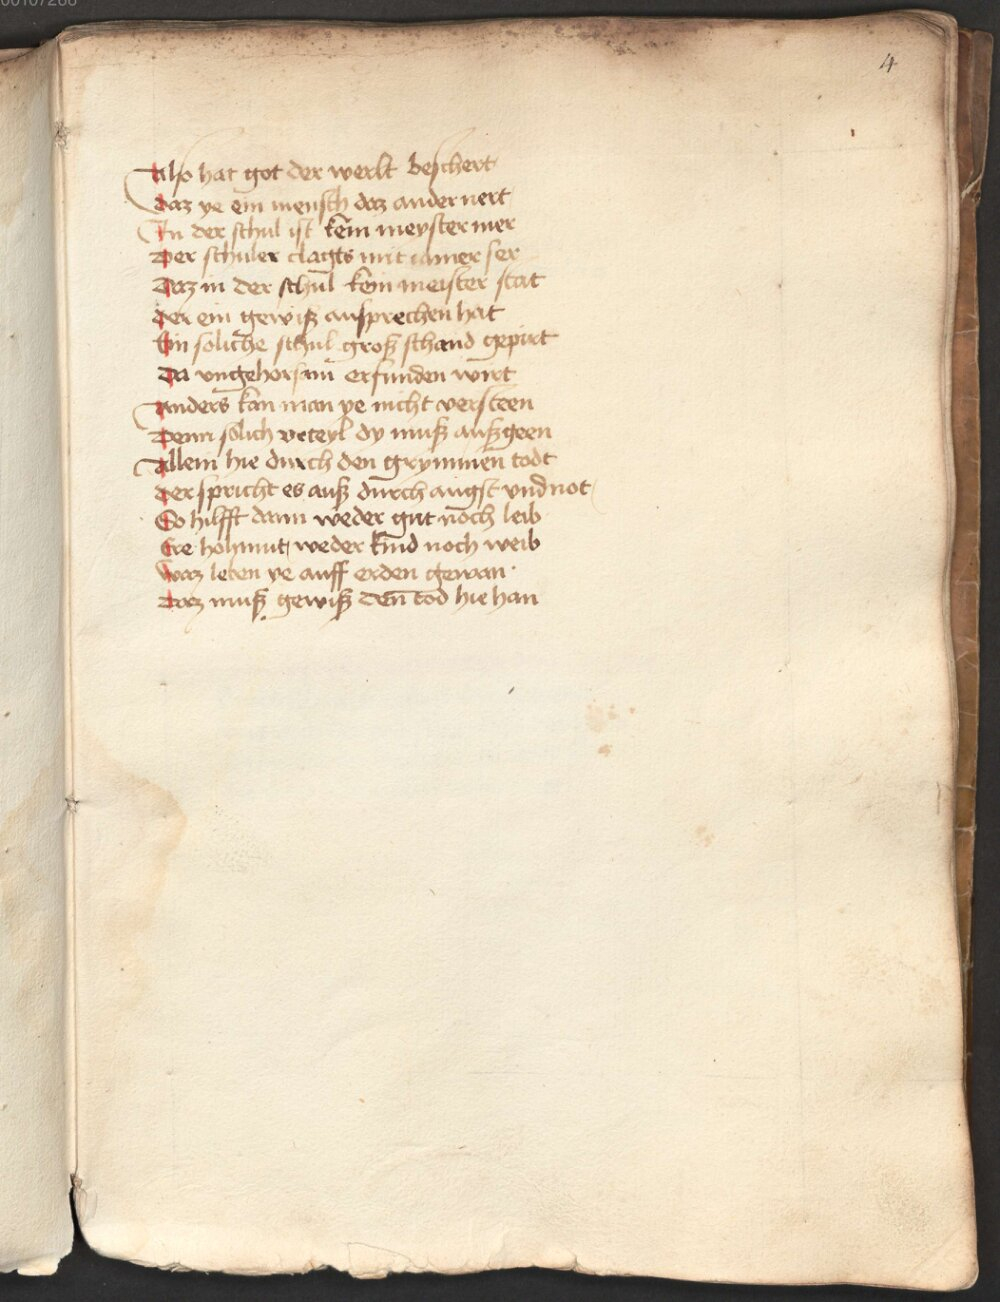 00107266
4
Also hat got der werlt beschert
Daz ye ein mensch daz ander nert
In der schul ist kein meyster mer
Der schuler clagts mit iamer ser
Daz in der schul kein meister stat
der ein gewiß ansprechen hat
Ein soliche schul groß schand gepirt
Da vngehorsam erfunden wirt
Anders kan man ye nicht versteen
Denn solich vrteyl dy muß außgeen
Allein hie durch den grymmen todt
der spricht es auß durch angst vnd not
So hilfft dann weder gut noch leib
Ere hohmut weder kind noch weib
Waz leben ye auff erden gewan
Daz muß gewiß den tod hie han